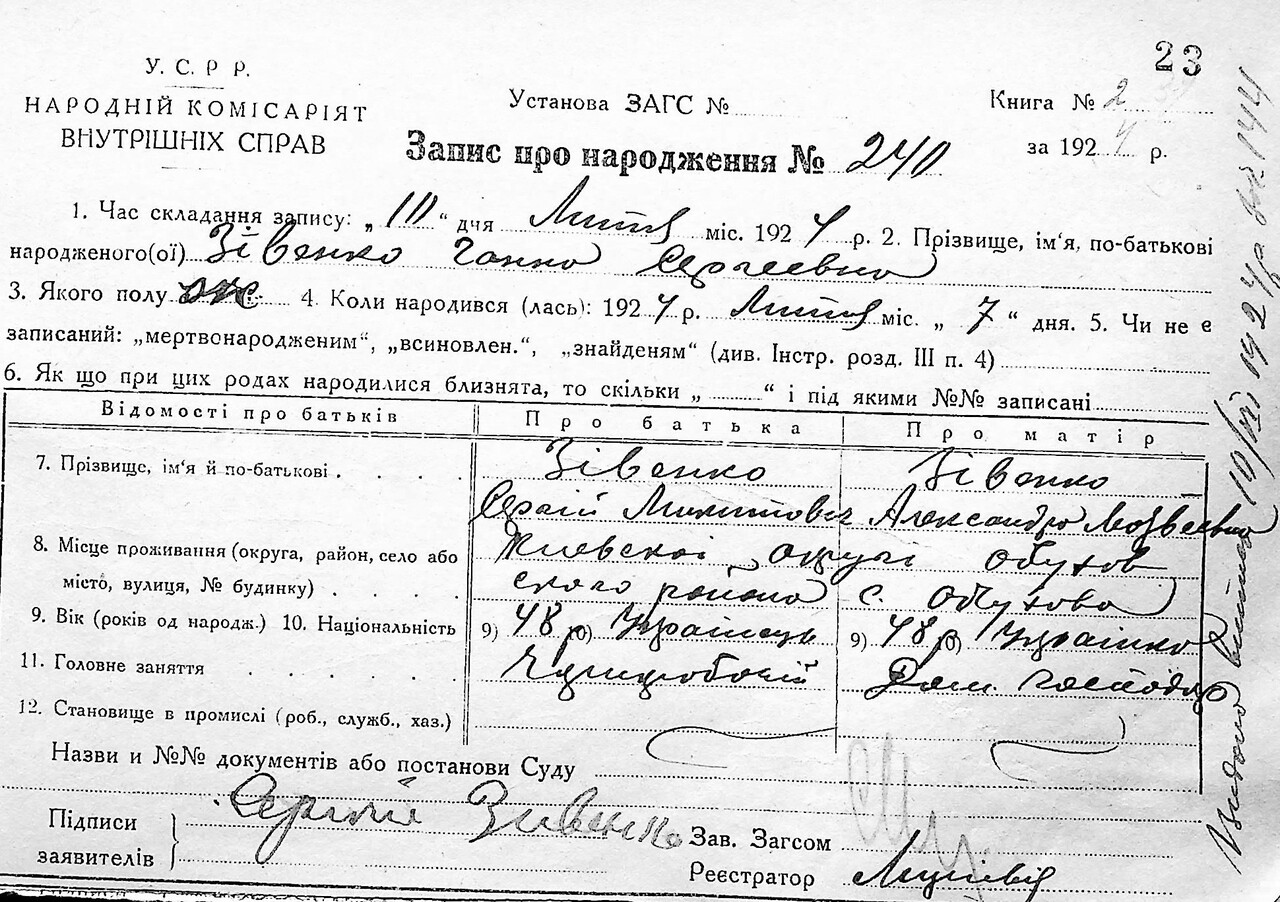 23
У. С. Р Р.
НАРОДНІЙ КОМІСАРІЯТ
ВНУТРІШНІХ СПРАВ
Установа ЗАГС №
Книга № 2
за 1924 р.
Запис про народження № 240
1. Час складання запису: „ “ дня Лютия міс. 1924 р. 2. Прізвище, ім‘я, по-батькові
народженого(ої) Зівенко Ганна Сергеевна
3. Якого полу жс. 4. Коли народився (лась): 1924 р. Лютия міс. „ 7 “ дня. 5. Чи не є
записаний: „мертвонародженим“, „всиновлен.“, „знайденям“ (див. Інстр. розд. III п. 4)
6. Як що при цих родах народилися близнята, то скільки „ “ і під якими №№ записані
Відомості про батьків Про батька Про матір
7. Прізвище, ім‘я й по-батькові . . . . Зівенко Зівенко
Сергій Александра
8. Місце проживання (округа, район, село або Киевскоі округі Обухов
місто, вулиця, № будинку) . . . . ского района с. Обухово
9. Вік (років од народж.) 10. Національність 9) 48 р 10) Українець 9) 48 р 10) Українка
11. Головне заняття . . . . . Чорноробочій Дом. господар
12. Становище в промислі (роб., служб., хаз.)
Назви и №№ документів або постанови Суду
Підписи
заявителів
Сергій Зивенко
Зав. Загсом
Реєстратор
Видано витяг 10/VII 1924 р. за № 144